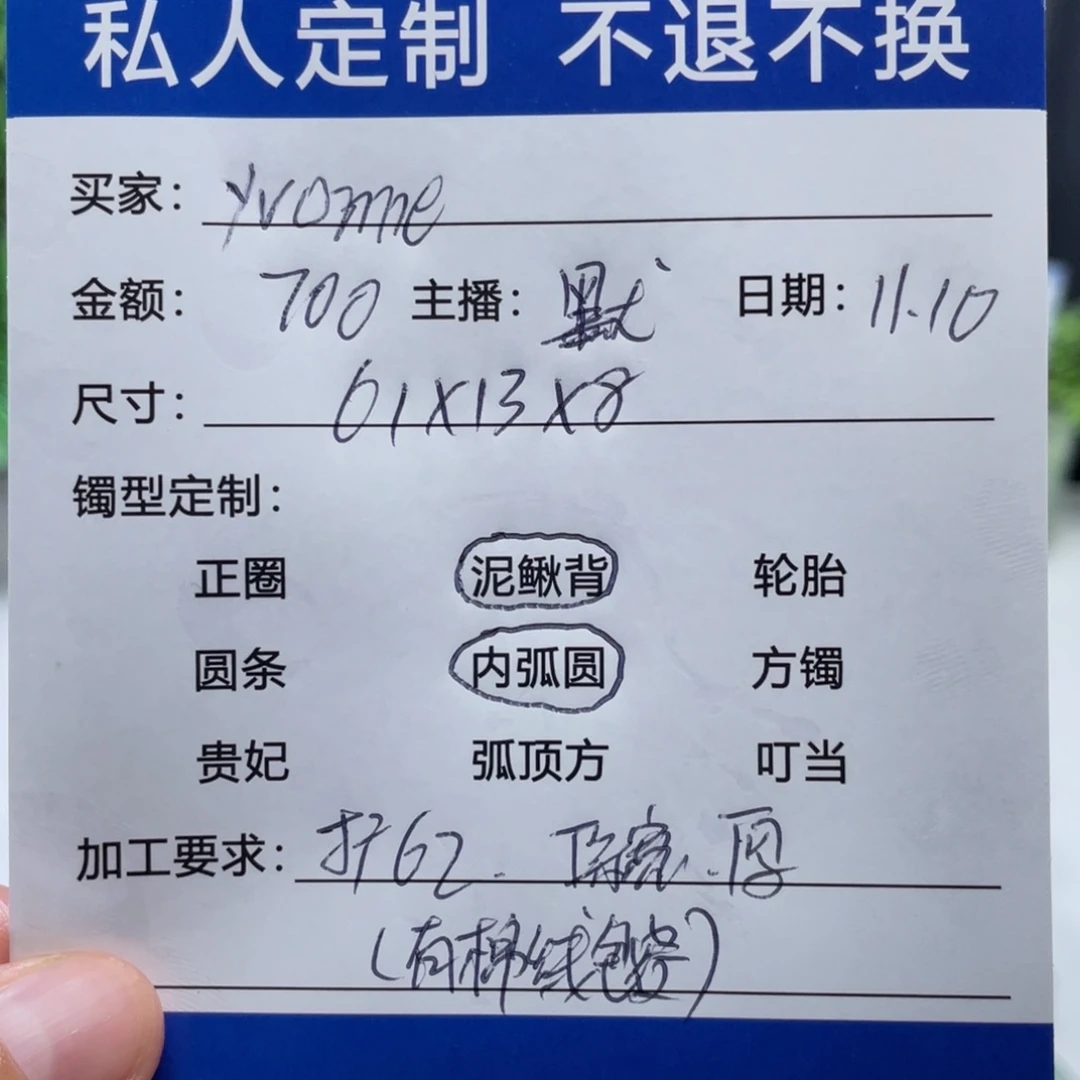 私人定制 不退不换
买家：yvonne
金额：700 主播：默 日期：11.10
尺寸：61X13X8
镯型定制：
正圈 泥鳅背 轮胎
圆条 内弧圆 方镯
贵妃 弧顶方 叮当
加工要求：扩62. 厚
(有棉线包容)